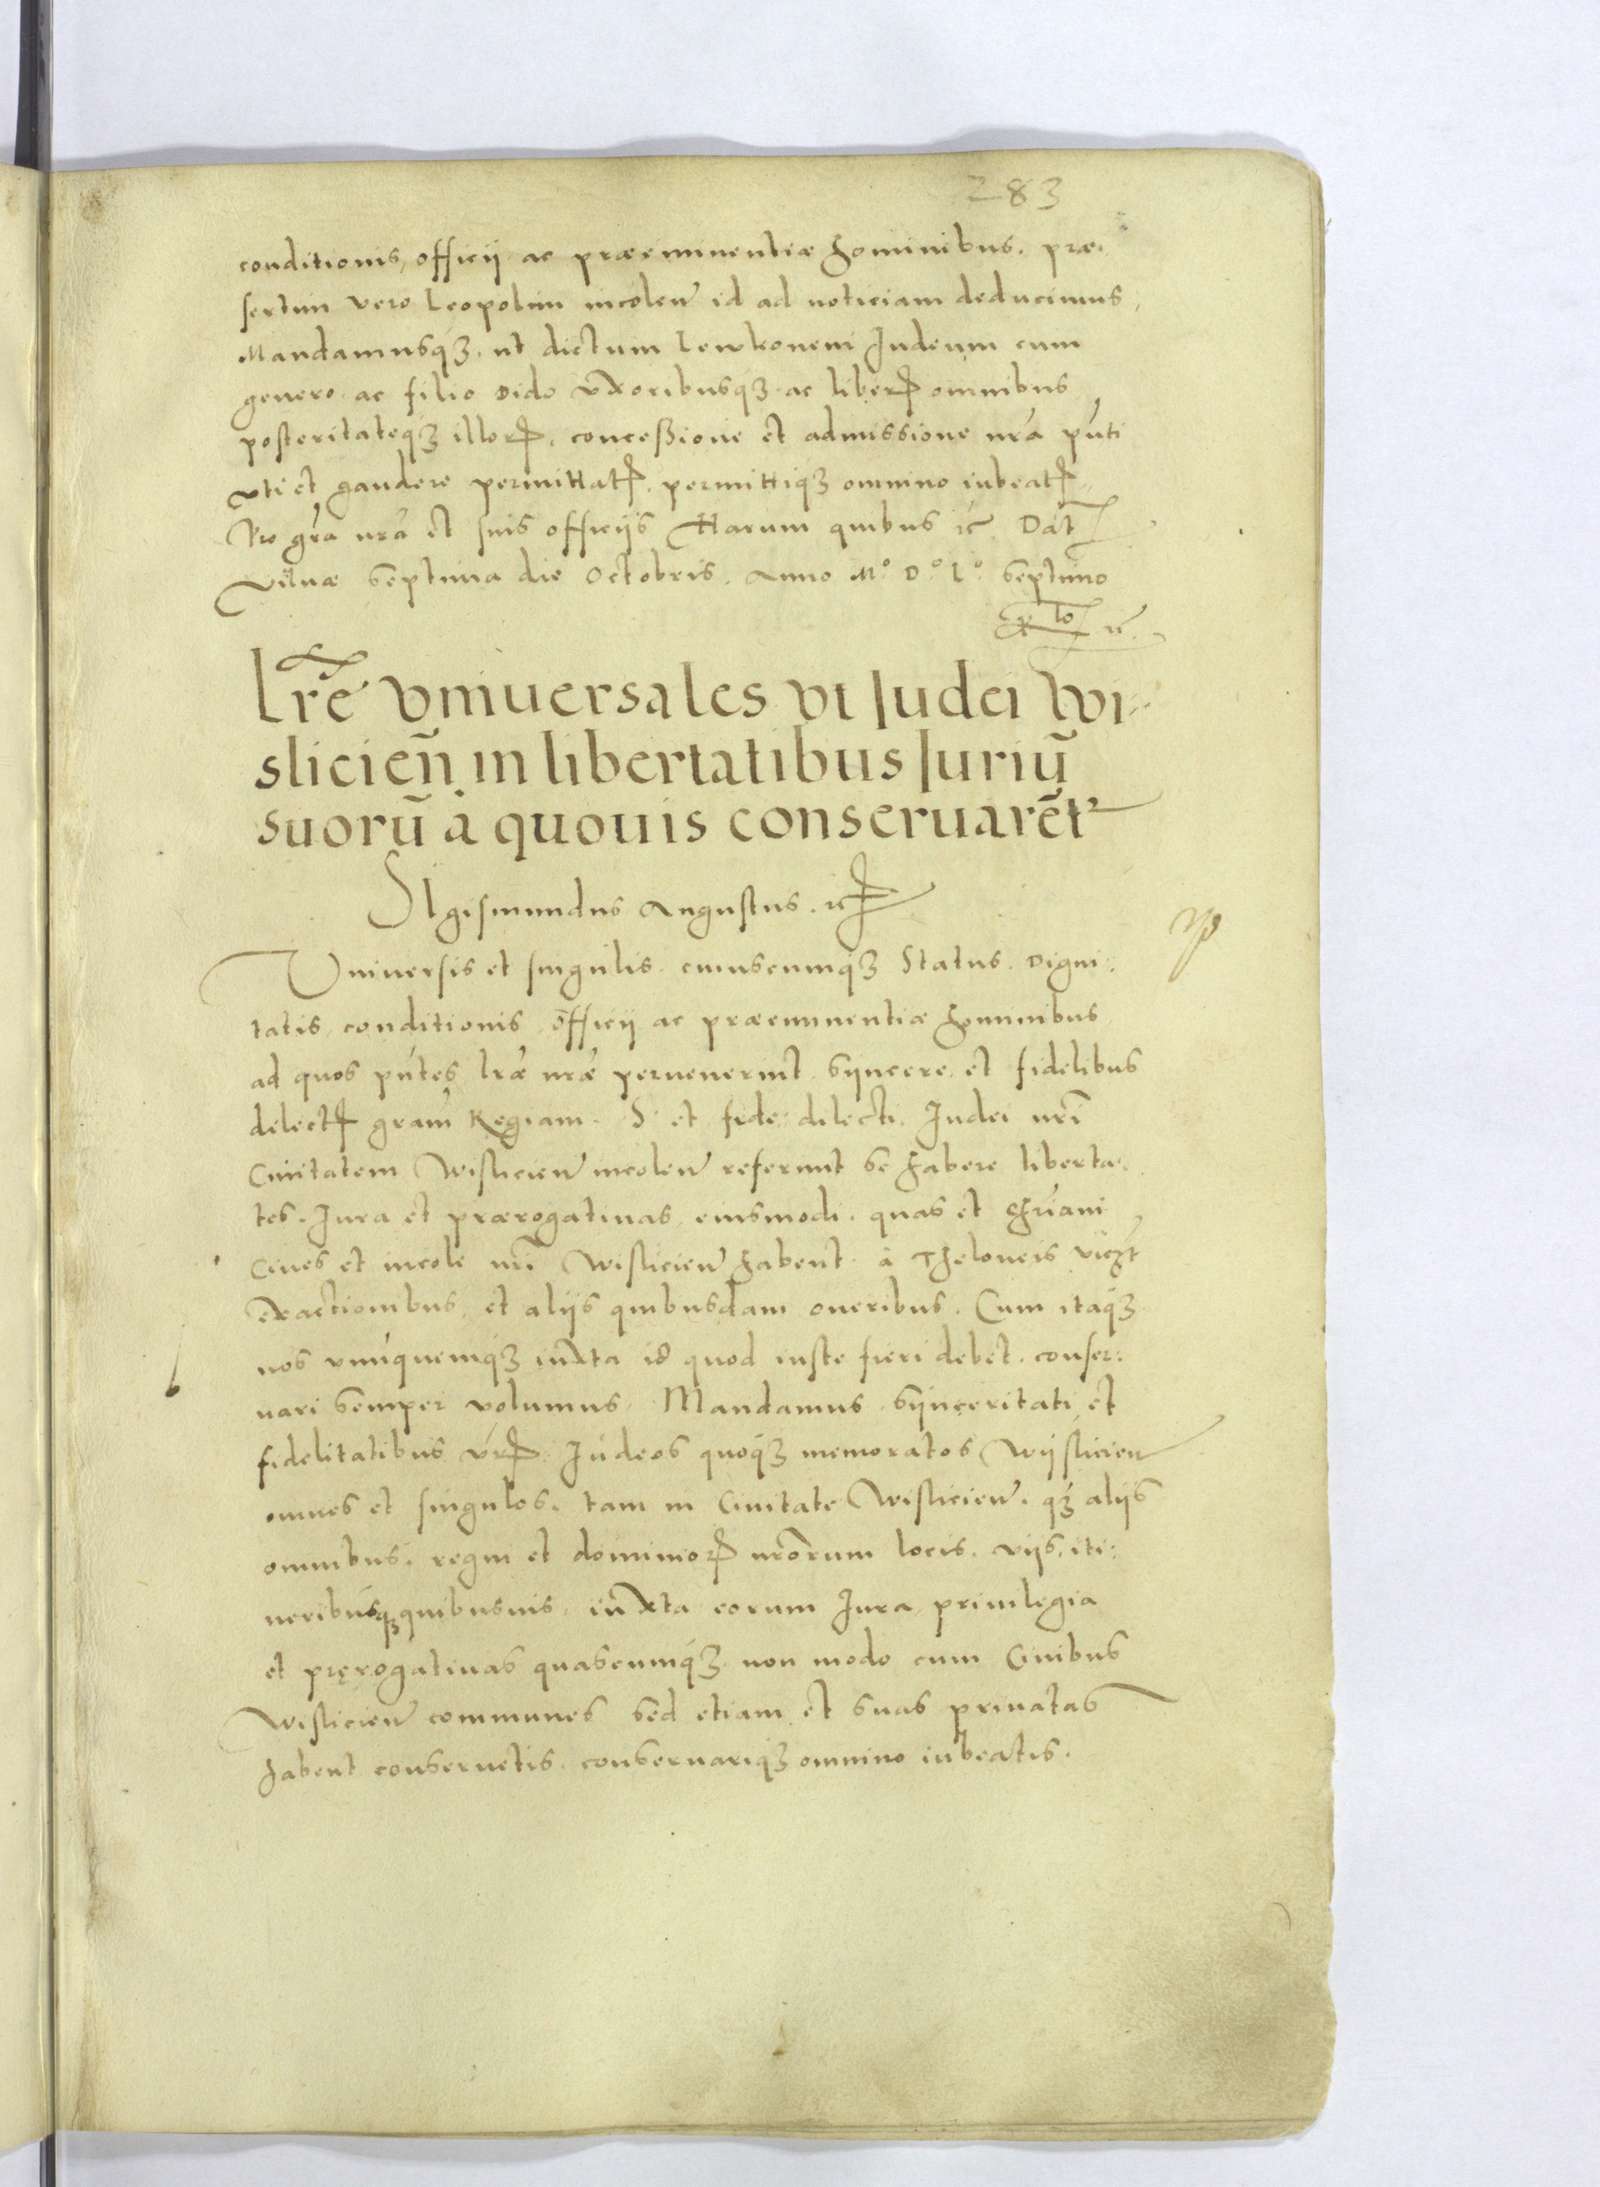 283
conditionis, officij ac præeminentiæ hominibus. præ-
sertim vero Leopolim incolen̄ id ad noticiam deducimus,
Mandamusq́ꝫ, ut dictum Lewkonem Judeum cum
genero ac filio Dido vxoribusq́ꝫ ac liberꝭ omnibus
posteritateq́ꝫ illorꝝ, conceßione et admissione nr̃a pn̄ti
vti et gaudere permittatꝭ, permittiqꝫ omnino iubeatꝭ
Pro gr̃a nr̃a et suis officijs Harum quibus ic̃ Dat̃
Vilnæ Septima die Octobris. Anno M.º D.º L.º Septimo
Lr̃e Vniuersales vt Judei Wi-
slicien̄ in libertatibus Juriū
suorū à quouis conseruarēt᷑
SIgismundus Augustus. ic̃
Vniuersis et singulis, cuiuscumq́ꝫ Status. Digni:
tatis, conditionis, officij ac præeminentiæ hominibus
ad quos pn̄tes lr̃æ nr̃æ peruenerint, Syncere et fidelibus
delectꝭ gram̃ Regiam. S. et fide: dilecti. Judei nr̃i
Ciuitatem Wislicien̄ incolen̄ referunt se habere liberta-
tes. Jura et prærogatiuas, eiusmodi, quas et chr̃iani
Ciues et incole nr̃i Wislicien̄ habent à Theloneis viꝫt
exactionibus, et alijs quibusdam oneribus. Cum itaq́ꝫ
nos vnúquemq́ꝫ iuxta id quod iuste fieri debet, conser:
uari Semper volumus, Mandamus Synceritati et
fidelitatibus vr̃ꝭ Judeos quoq́ꝫ memoratos Wijslicien̄
omnes et singulos, tam in Ciuitate Wislicien̄. qꝫ́ alijs
omnibus, regni et dominiorꝝ nr̃orum locis, viis, iti:
neribúsqꝫ quibusuis, iuxta eorum Jura, priuilegia
et pręrogatiuas quascumq́ꝫ, non modo cum Ciuibus
Wislicien̄ communes Sed etiam et Suas priuatas
habent conseruetis, conseruariqꝫ omnino iubeatis.